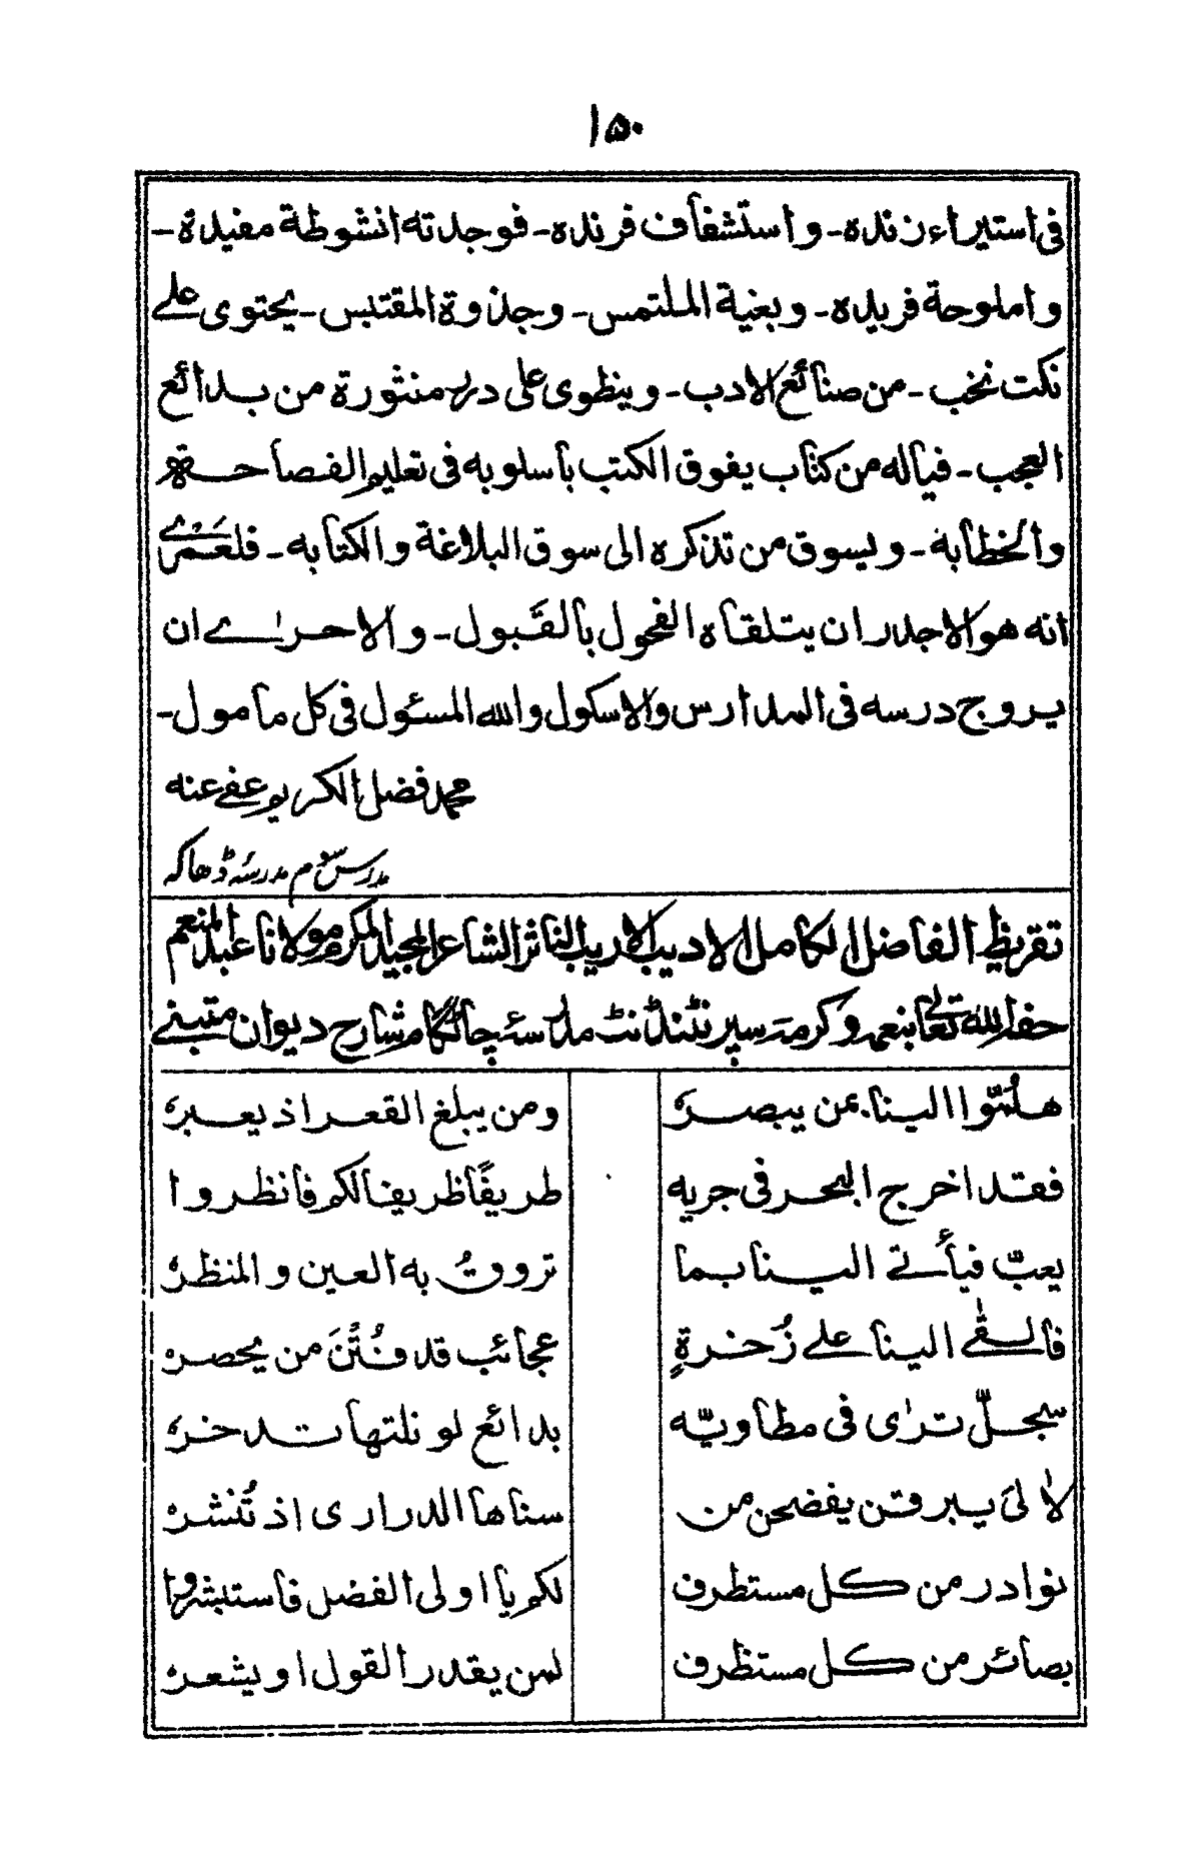 ۱۵۰
فی استیراء زنده۔ واستشفاف فرنده۔ فوجدته انشوطة مفیدة۔
واملوحة فریده۔ وبغیة الملتمس۔ وجذوة المقتبس۔ یحتوی علے
نکت نخب۔ من صنائع الادب۔ وینطوی علی درر منثورة من بدائع
العجب۔ فیاله من کتاب یفوق الکتب باسلوبه فی تعلیم الفصاحة
والخطابه۔ ویسوق من تذکره الی سوق البلاغة والکتابه۔ فلعَمرے
انه هو الاجدر ان یتلقاه الفحول بالقَبول۔ والاحرٰے ان
یروج درسه فی المدارس والاسکول والله المسئول فی کل مامول۔
محمد فضل الکریم عفی عنه
مدرس سوم مدرسۂ ڈھاکہ
تقریظ الفاضل الکامل الادیب الاریب الناثر الشاعر المجید المکرم مولانا عبد المنعم
حفظ الله تعالے بنعمه وکرمه سپرنٹنڈنٹ مدرسۂ چاٹگام شارح دیوان متنبے
هلمّوا الینا بمن یبصره ومن یبلغ القعر اذ یعبره
فقد اخرج البحر فی جریه طریفًا ظریفا لکم فانظروا
یعبّ فیأتے الینا بما تروقُ به العین والمنظره
فالقٰے الینا علے زُخرةٍ عجائب قد فُتْنَ من یحصره
سجلّ ترٰی فی مطاویّه بدائع لو نلتها تدخره
لاٰلیَ یبرقن یفضحن من سناها الدراری اذ تُنشره
نوادر من کل مستطرف لکم یا اولی الفضل فاستبشروا
بصائر من کل مستظرف لمن یقدر القول او یشعره